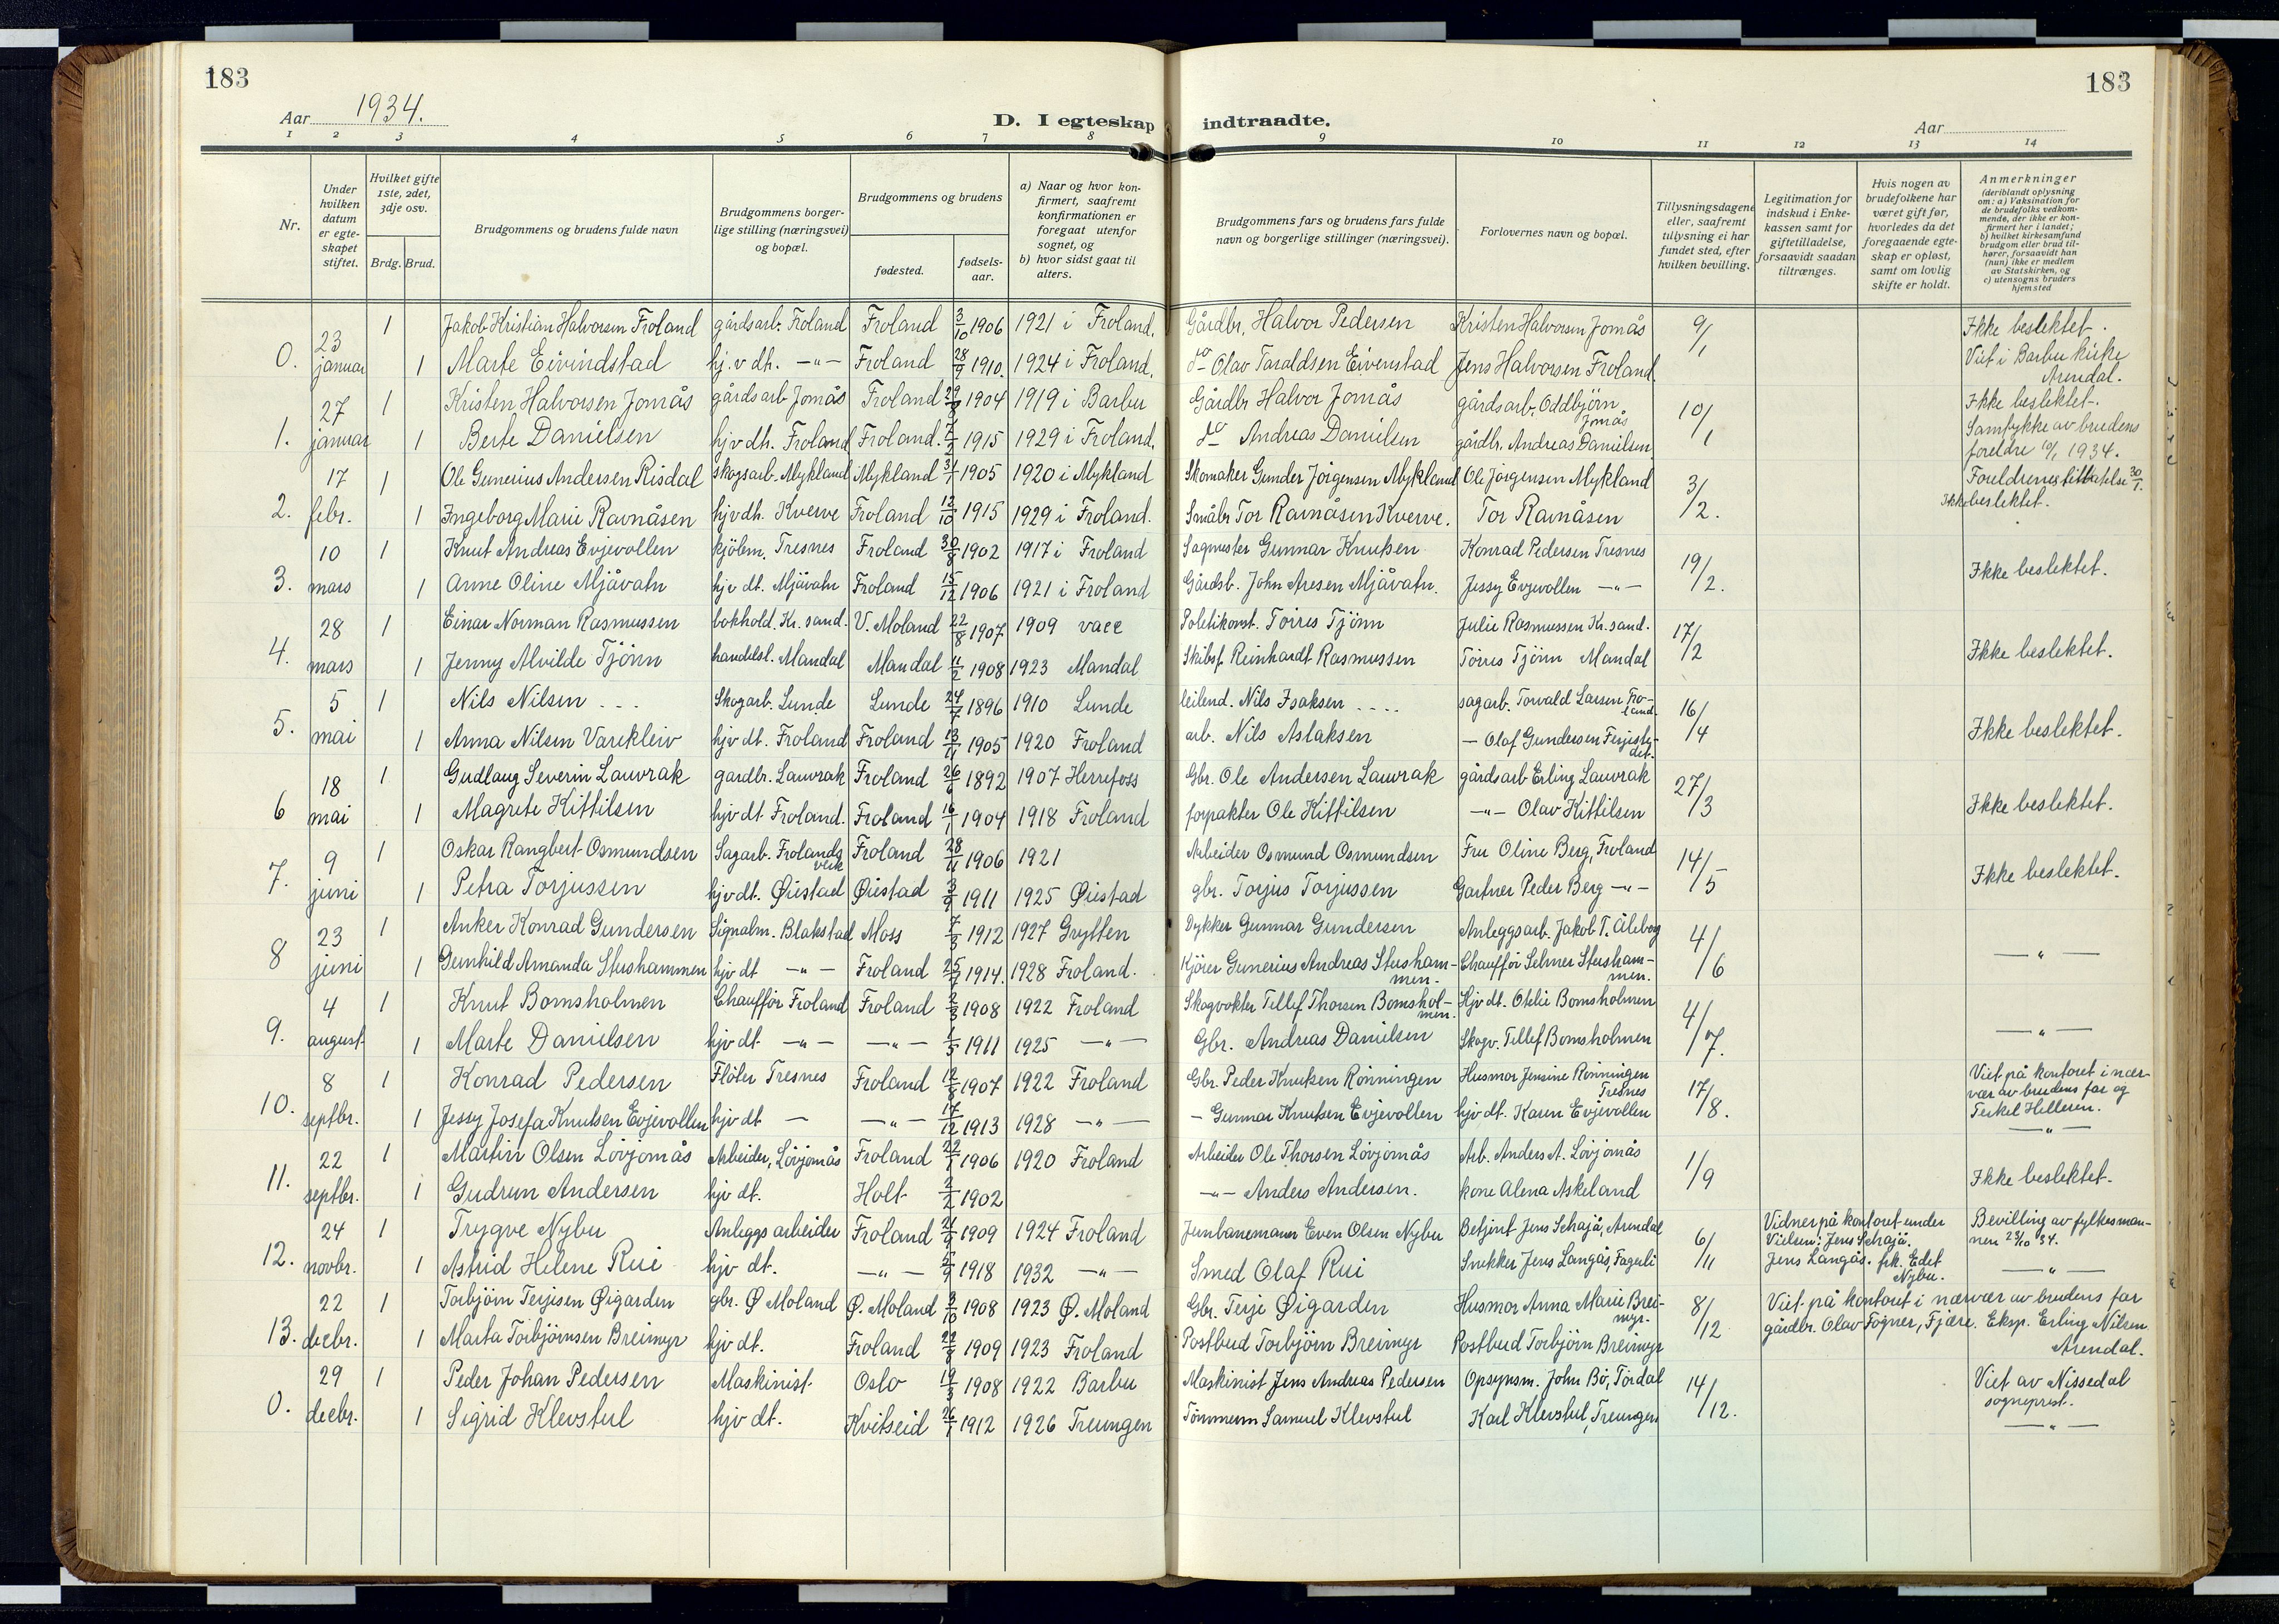 183
183
Aar 1934.
D. I egteskap indtraadte.
Aar
1 2 3 4 5 6 7 8 9 10 11 12 13 14
Nr.
Under hvilken datum er egteskapet stiftet.
Hvilket gifte 1ste, 2det, 3dje osv.
Brdg. Brud.
Brudgommens og brudens fulde navn
Brudgommens borgerlige stilling (næringsvei) og bopæl.
Brudgommens og brudens
fødested.
fødselsaar.
a) Naar og hvor konfirmert, saafremt konfirmationen er foregaat utenfor sognet, og
b) hvor sidst gaat til alters.
Brudgommens fars og brudens fars fulde navn og borgerlige stillinger (næringsvei).
Forlovernes navn og bopæl.
Tillysningsdagene eller, saafremt tillysning ei har fundet sted, efter hvilken bevilling.
Legitimation for indskud i Enkekassen samt for giftetilladelse, forsaavidt saadan tiltrænges.
Hvis nogen av brudefolkene har været gift før, hvorledes da det foregaaende egteskap er opløst, samt om lovlig skifte er holdt.
Anmerkninger
(deriblandt oplysning om: a) Vaksination for de brudefolks vedkommende, der ikke er konfirmert her i landet; b) hvilket kirkesamfund brudgom eller brud tilhører, forsaavidt han (hun) ikke er medlem av Statskirken, og c) utensogns bruders hjemsted
0. 23 januar 1 Jakob Kristian Halvorsen Froland gårdsarb. Froland Froland 3/10 1906 1921 i Froland. Gårdbr. Halvor Pedersen Kristen Halvorsen Jomås 9/1 Ikke beslektet.
1 Marte Eivindstad hj. v dt. -"- Froland 28/9 1910. 1924 i Froland. do Olav Taraldsen Eivenstad Jens Halvorsen Froland. Viet i Barbu kirke Arendal.
1. 27 januar 1 Kristen Halvorsen Jomås gårdsarb Jomås Froland 29/8 1904 1919 i Barbu Gårdbr Halvor Jomås gårdsarb. Oddbjörn Jomås 10/1 Ikke beslektet.
1 Berte Danielsen hjv dt. Froland Froland. 7/2 1915 1929 i Froland. do Andreas Danielsen gårdbr. Andreas Danielsen Samtykke av brudens foreldre 10/1 1934.
2. 17 febr. 1 Ole Gunerius Andersen Risdal skogsarb. Mykland Mykland 31/1 1905 1920 i Mykland Skomaker Gunder Jörgensen Mykland Ole Jörgensen Mykland 3/2. Foreldrenes tillatelse 30/1.
1 Ingeborg Marie Ravnåsen hjv dt. Kverve Froland 12/10 1915 1929 i Froland. Småbr Tor Ravnåsen Kverve. Tor Ravnåsen Ikke beslektet.
3. 10 mars 1 Knut Andreas Evjevollen kjölem. Tresnes Froland 30/8 1902 1917 i Froland Sagmester Gunnar Knutsen Konrad Pedersen Tresnes 19/2.
1 Anne Oline Mjåvatn hjv dt. Mjåvatn Froland 15/12 1906 1921 i Froland Gårdsb. John Aresen Mjåvatn. Jessy Evjevollen -"- Ikke beslektet.
4. 28 mars 1 Einar Norman Rasmussen bokhold. Kr. sand. V. Moland 22/8 1907 1909 vacc Politikonst. Törres Tjönn Julie Rasmussen Kr. sand. 17/2
1 Jenny Alvilde Tjönn handelsl. Mandal Mandal 11/2 1908 1923 Mandal Skibsf. Reinhardt Rasmussen Törres Tjönn Mandal Ikke beslektet.
5. 5 mai 1 Nils Nilsen . . . Skogarb. Lunde Lunde 24/7 1896 1910 Lunde leilend. Nils Isaksen . . . . sagarb. Torvald Larsen Froland. 16/4
1 Anna Nilsen Varekleiv hjv dt. Froland Froland 13/11 1905 1920 Froland arb. Nils Aslaksen - Olaf Gundersen Ikke beslektet.
6 18 mai 1 Gudlaug Severin Lauvrak gardbr. Lauvrak Froland 26/6 1892 1907 Herrefoss Gbr. Ole Andersen Lauvrak gårdsarb Erling Lauvrak 27/3
1 Magrete Kittilsen hjv dt Froland. Froland 16/1 1904 1918 Froland forpakter Ole Kittilsen -"- Olav Kittilsen Ikke beslektet.
7. 9 juni 1 Oskar Rangbert Osmundsen Sagarb. Frolands verk Froland 28/11 1906 1921 Arbeider Osmund Osmundsen Fru Oline Berg, Froland 14/5
1 Petra Torjussen hjv dt. Øiestad Øiestad 3/9 1911 1925 Øiestad gbr. Torjus Torjussen Gartner Peder Berg -"- Ikke beslektet.
8 23 juni 1 Anker Konrad Gundersen Signalm. Blakstad Moss 7/3 1912 1927 Grytten Dykker Gunnar Gundersen Anleggsarb. Jakob T. Åleborg 4/6
1 Gunhild Amanda Stushammen hjv dt -"- Froland 25/7 1914. 1928 Froland. Kjörer Gunerius Andreas Stushammen. Chaufför Selmer Stushammen. -"-
9. 4 august 1 Knut Bomsholmen Chaufför Froland Froland 2/3 1908 1922 Froland Skogvokter Tellef Thorsen Bomsholmen. Hjv dt. Otelie Bomsholmen 4/7.
1 Marte Danielsen hjv dt -"- -"- 1/5 1911 1925 -"- Gbr. Andreas Danielsen Skogv. Tellef Bomsholmen -"-
10. 8 septbr. 1 Konrad Pedersen Flöter Tresnes Froland 12/8 1907 1922 Froland Gbr. Peder Knutsen Rönningen Husmor Jensine Rönningen Tresnes 17/8. Viet på kontoret i nærvær av brudens far og Terkel Hellesen.
1 Jessy Josefa Knutsen Evjevollen hjv dt - -"- 17/12 1913 1928 -"- - Gunnar Knutsen Evjevollen hjv dt. Karen Evjevollen -"-
11. 22 septbr. 1 Martin Olsen Lövjomås Arbeider, Lövjomås Froland 22/1 1906 1920 Froland Arbeider Ole Thorsen Lövjomås Arb. Anders A. Lövjomås 1/9
1 Gudrun Andersen hjv dt. Holt 2/2 1902 -"- Anders Andersen. kone Alena Askeland Ikke beslektet.
12. 24 novbr. 1 Trygve Nybu Anleggsarbeider Froland 21/9 1909 1924 Froland Jernbanemann Even Olsen Nybu Betjent Jens Schajå, Arendal 6/11 Vidner på kontoret under Vielsen: Jens Schajå. Bevilling av fylkesmannen 23/10 34.
1 Astrid Helene Rui hjv dt. -"- 5/9 1918 1932 -"- Smed Olaf Rui Snekker Jens Langås, Fagerli Jens Langås. frk. Edit Nybu. -"-
13. 22 decbr. 1 Torbjörn Terjesen Øigarden gbr. Ø Moland Ø. Moland 3/10 1908 1923 Ø. Moland Gbr. Terje Øigarden Husmor Anna Marie Breimyr. 8/12 Viet på kontoret i nærvær av brudens far
1 Marta Torbjörnsen Breimyr hjv dt. Froland 22/8 1909 1923 Froland Postbud Torbjörn Breimyr Postbud Torbjörn Breimyr gårdbr. Olav Fogner, Fjære. Eksp. Erling Nilsen Arendal.
0. 29 decbr. 1 Peder Johan Pedersen Maskinist Oslo 19/3 1908 1922 Barbu Maskinist Jens Andreas Pedersen Opsynsm. John Bö, Tördal 14/12. Viet av Nissedal sogneprest.
1 Sigrid Klevstul hjv dt. Kvitseid 26/1 1912 1926 Treungen Tömmerm Samuel Klevstul Karl Klevstul, Treungen -"-